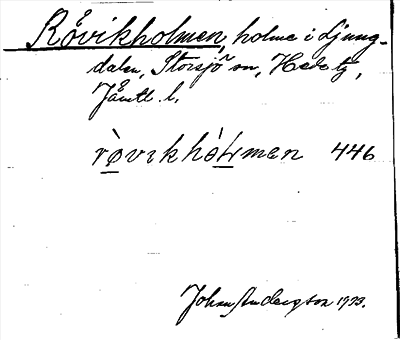 Råvikholmen, holme i Ljung-
dalen, Storsjö sn, Hede tg,
Jämtl. l.
ròvikhólmen 446
Johan Anderson 1933.